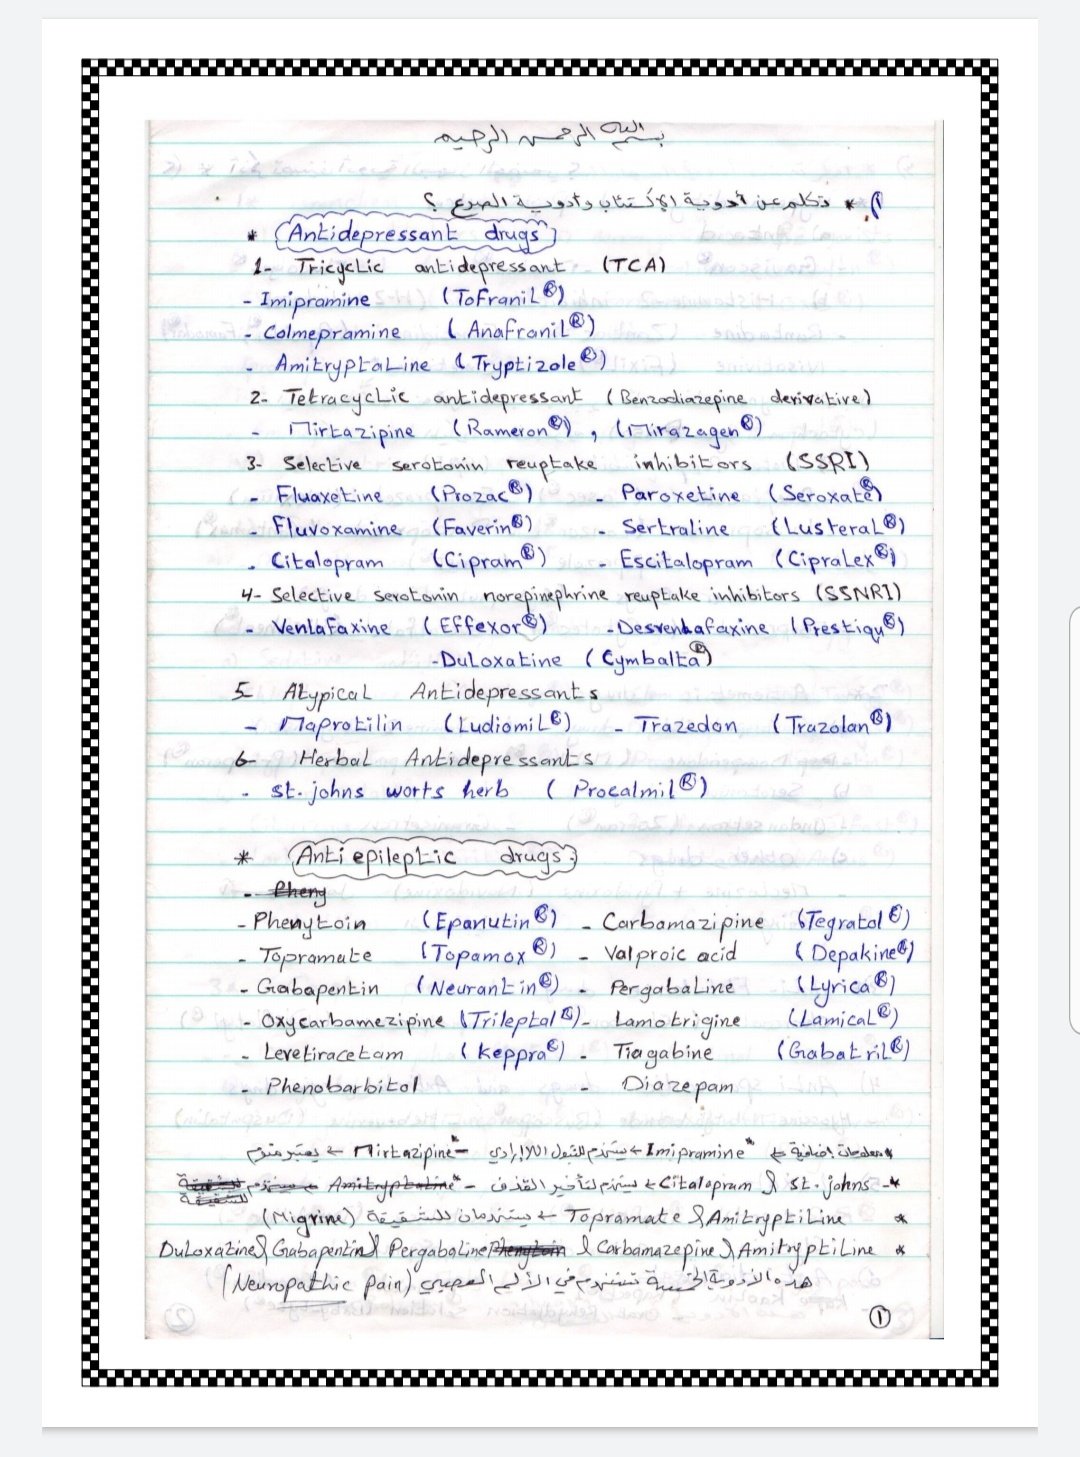 بسم الله الرحمن الرحيم
١) * تكلم عن أدوية الإكتئاب وأدوية الصرع ؟
* Antidepressant drugs
1- Tricyclic antidepressant (TCA)
- Imipramine (Tofranil®)
- Colmepramine (Anafranil®)
- Amitryptaline (Tryptizole®)
2- Tetracyclic antidepressant (Benzodiazepine derivative)
- Mirtazipine (Rameron®) , (Mirazagen®)
3- Selective serotonin reuptake inhibitors (SSRI)
- Fluaxetine (Prozac®) - Paroxetine (Seroxate®)
- Fluvoxamine (Faverin®) - Sertraline (Lusteral®)
- Citalopram (Cipram®) - Escitalopram (Cipralex®)
4- Selective serotonin norepinephrine reuptake inhibitors (SSNRI)
- Venlafaxine (Effexor®) - Desvenlafaxine (Prestiqu®)
- Duloxatine (Cymbalta®)
5- Atypical Antidepressants
- Maprotilin (Ludiomil®) - Trazedon (Trazolan®)
6- Herbal Antidepressants
- st. johns worts herb (Procalmil®)
* Anti epileptic drugs
- Pheny
- Phenytoin (Epanutin®) - Carbamazipine (Tegratol®)
- Topramate (Topamox®) - Valproic acid (Depakine®)
- Gabapentin (Neurantin®) - Pergabaline (Lyrica®)
- Oxycarbamezipine (Trileptal®) - Lamotrigine (Lamical®)
- Levetiracetam (Keppra®) - Tiagabine (Gabatril®)
- Phenobarbitol - Diazepam
* معلومات إضافية ← * Imipramine ← يستخدم للتبول اللاإرادي - * Mirtazipine ← يعتبر منوم
* - st. johns & Citalopram ← يستخدم لتأخير القذف - * Amitryptaline ← يستخدم للشقيقة
* Topramate & Amitryptiline ← يستخدمان للشقيقة (Migrine)
* Amitryptiline & Carbamazepine & Phenytoin Pergabaline & Gabapentin & Duloxatine
هذه الأدوية الخمسة تستخدم في الألم العصبي (Neuropathic pain)
١